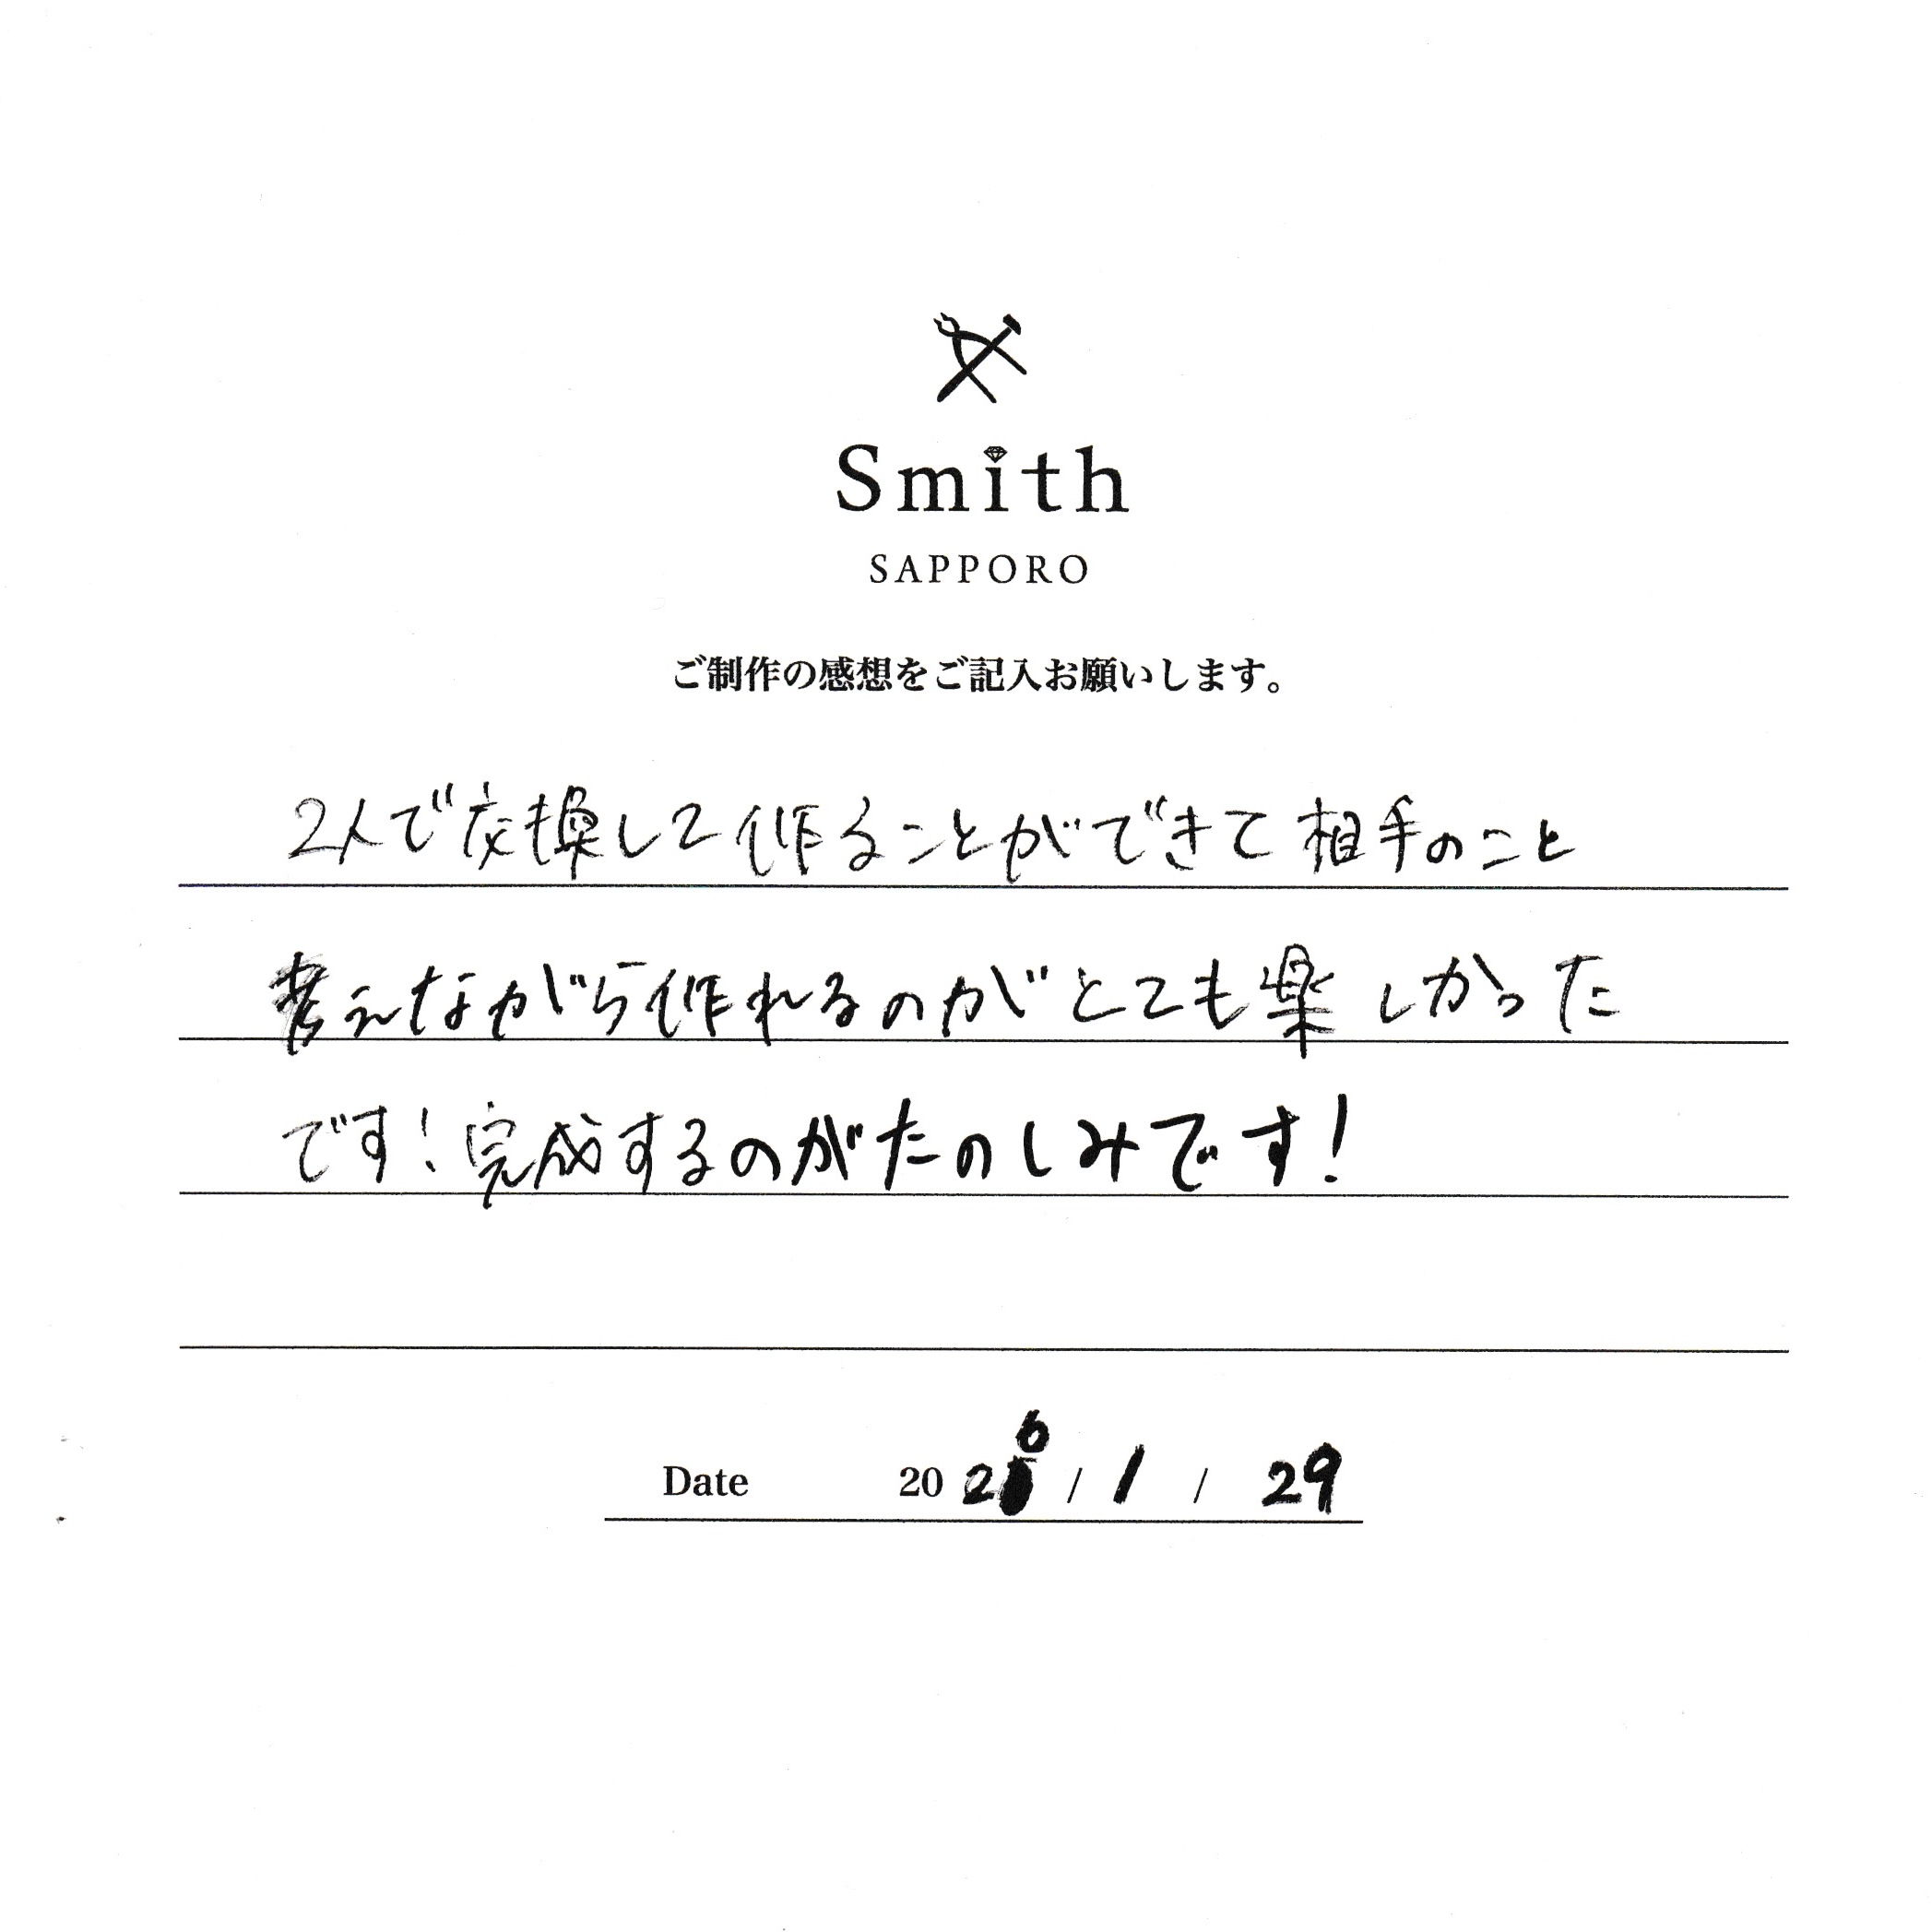 Smith
SAPPORO
ご制作の感想をご記入お願いします。
2人で交換して作ることができて相手のこと
考えながら作れるのがとても楽しかった
です!完成するのがたのしみです!
Date 2026 / 1 / 29